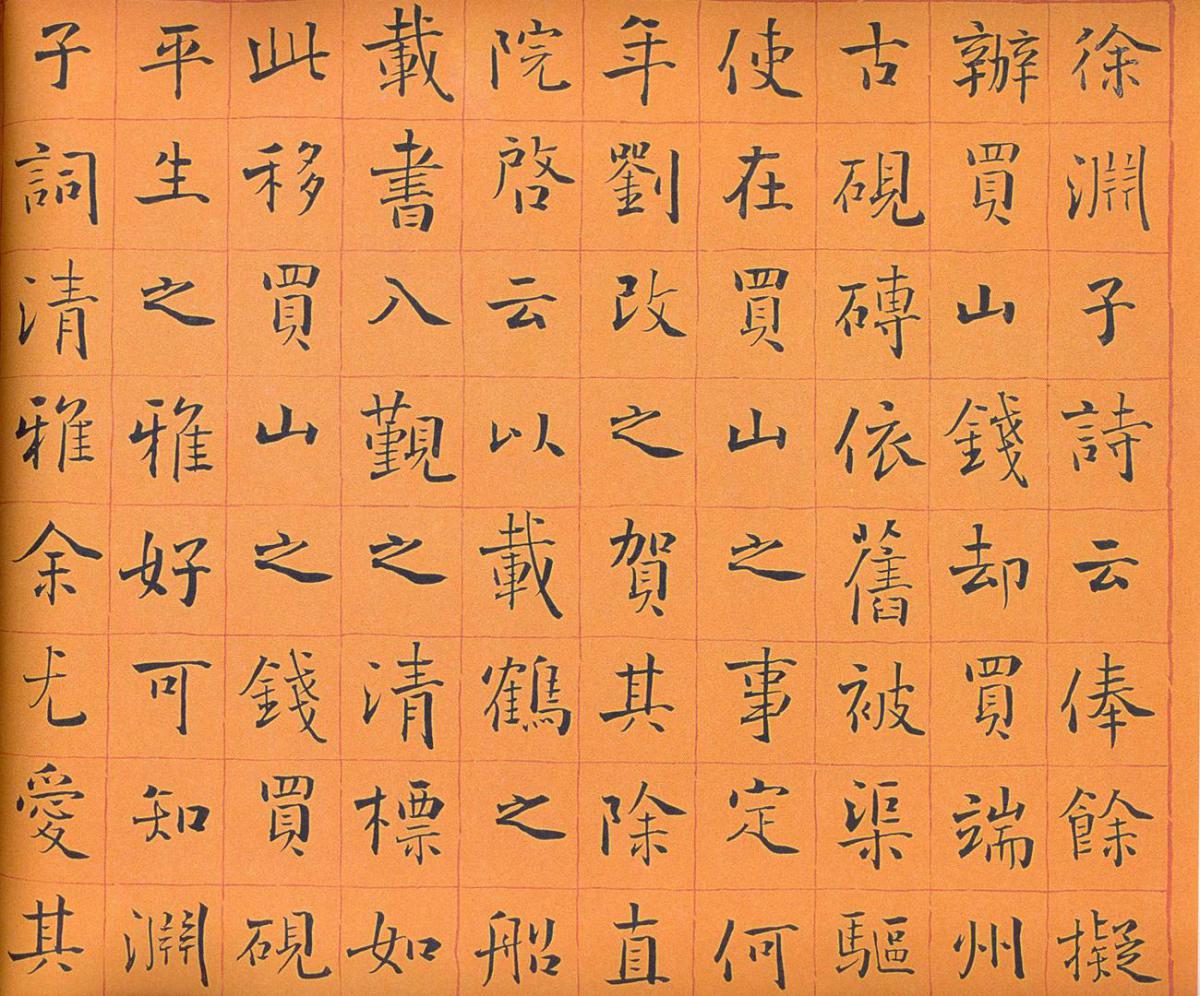 徐淵子詩云俸餘擬
辦買山錢却買端州
古硯磚依舊被渠驅
使在買山之事定何
年劉改之賀其除直
院啓云以載鶴之船
載書入覲之清標如
此移買山之錢買硯
平生之雅好可知淵
子詞清雅余尤愛其